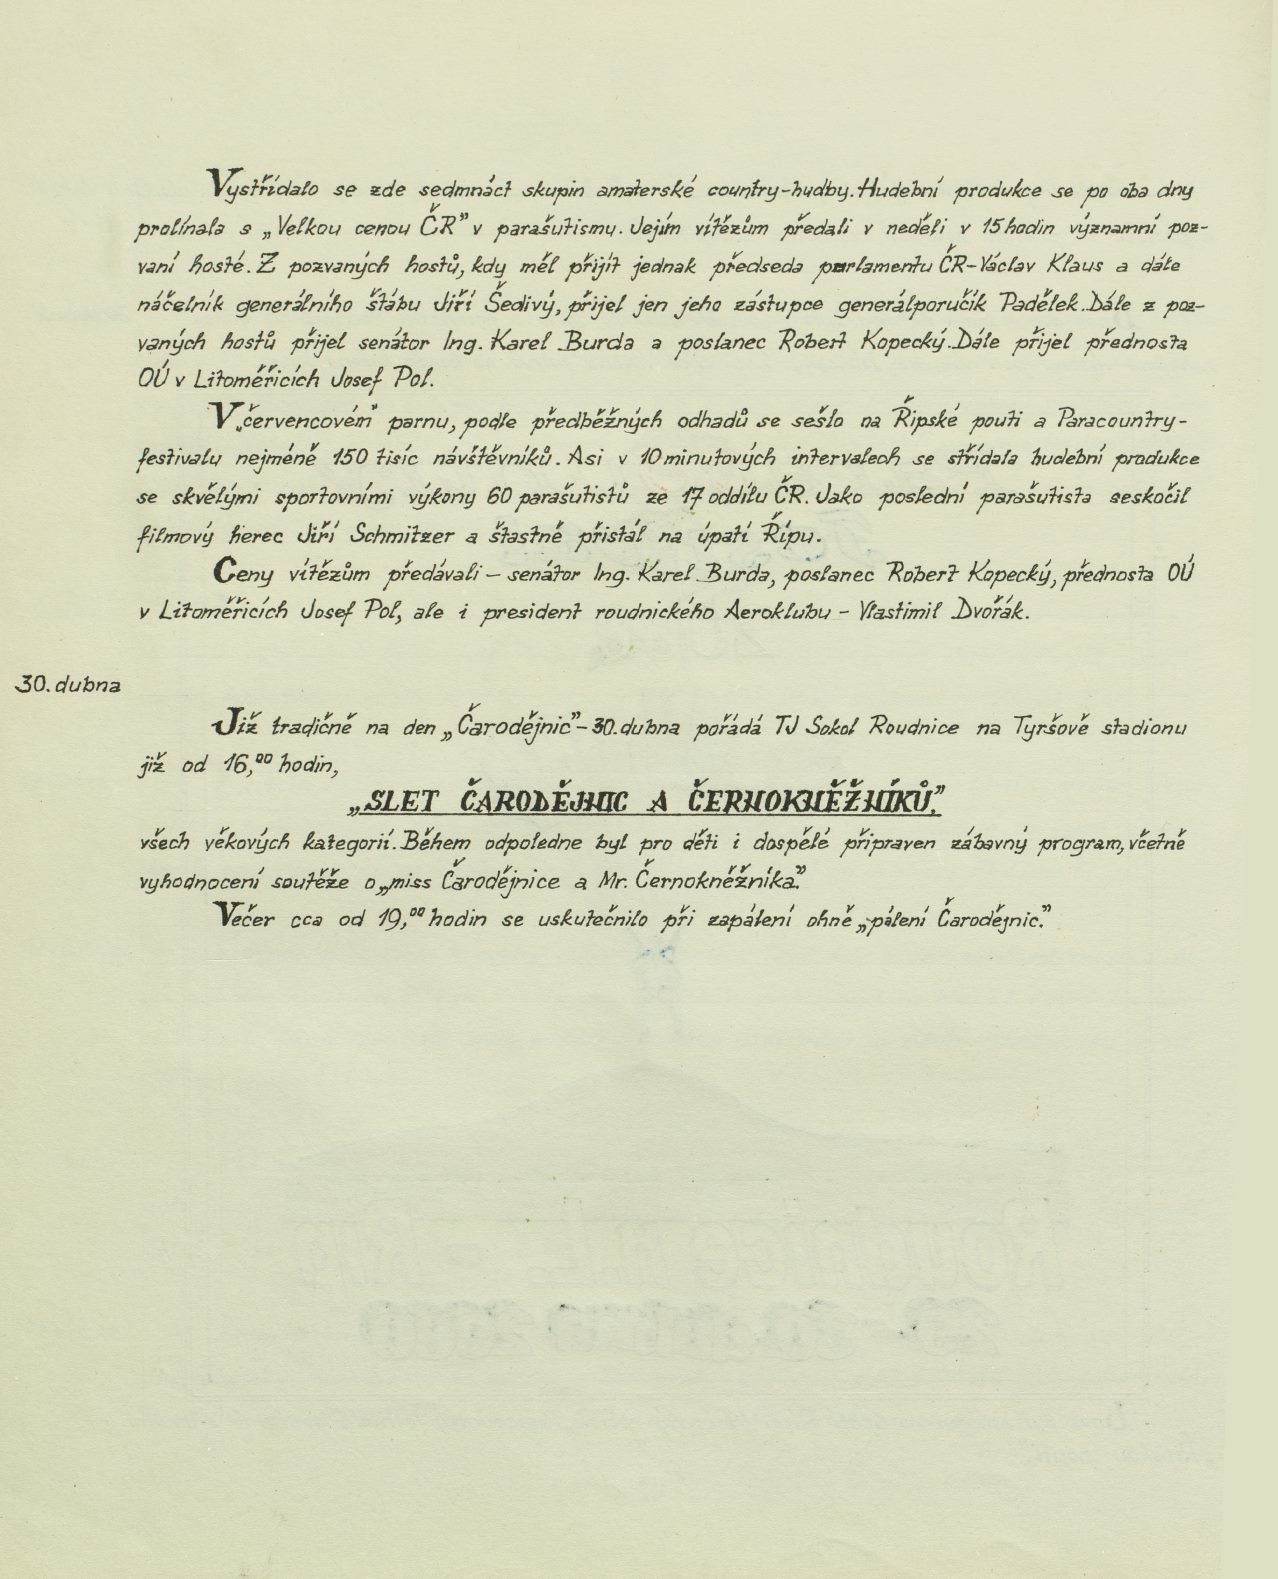 Vystřídalo se zde sedmnáct skupin amaterské country-hudby. Hudební produkce se po oba dny
prolínala s „Velkou cenou ČR" v parašutismu. Jejím vítězům předali v neděli v 15 hodin významní poz-
vaní hosté. Z pozvaných hostů, kdy měl přijít jednak předseda parlamentu ČR-Václav Klaus a dále
náčelník generálního štábu Jiří Šedivý, přijel jen jeho zástupce generálporučík Padělek. Dále z poz-
vaných hostů přijel senátor Ing. Karel Burda a poslanec Robert Kopecký. Dále přijel přednosta
OÚ v Litoměřicích Josef Pol.
V „červencovém" parnu, podle předběžných odhadů se sešlo na Řipské pouti a Paracountry-
festivalu nejméně 150 tisíc návštěvníků. Asi v 10 minutových intervalech se střídala hudební produkce
se skvělými sportovními výkony 60 parašutistů ze 17 oddílu ČR. Jako poslední parašutista seskočil
filmový herec Jiří Schmitzer a štastně přistál na úpatí Řípu.
Ceny vítězům předávali – senátor Ing. Karel Burda, poslanec Robert Kopecký, přednosta OÚ
v Litoměřicích Josef Pol, ale i president roudnického Aeroklubu – Vlastimil Dvořák.
30. dubna
Již tradičně na den „Čarodějnic"-30. dubna pořádá TJ Sokol Roudnice na Tyršově stadionu
již od 16,00 hodin,
„SLET ČARODĚJNIC A ČERNOKNĚŽNÍKŮ."
všech věkových kategorií. Během odpoledne byl pro děti i dospělé připraven zábavný program, včetně
vyhodnocení soutěže o „miss Čarodějnice a Mr. Černokněžníka."
Večer cca od 19,00 hodin se uskutečnilo při zapálení ohně „pálení Čarodějnic."